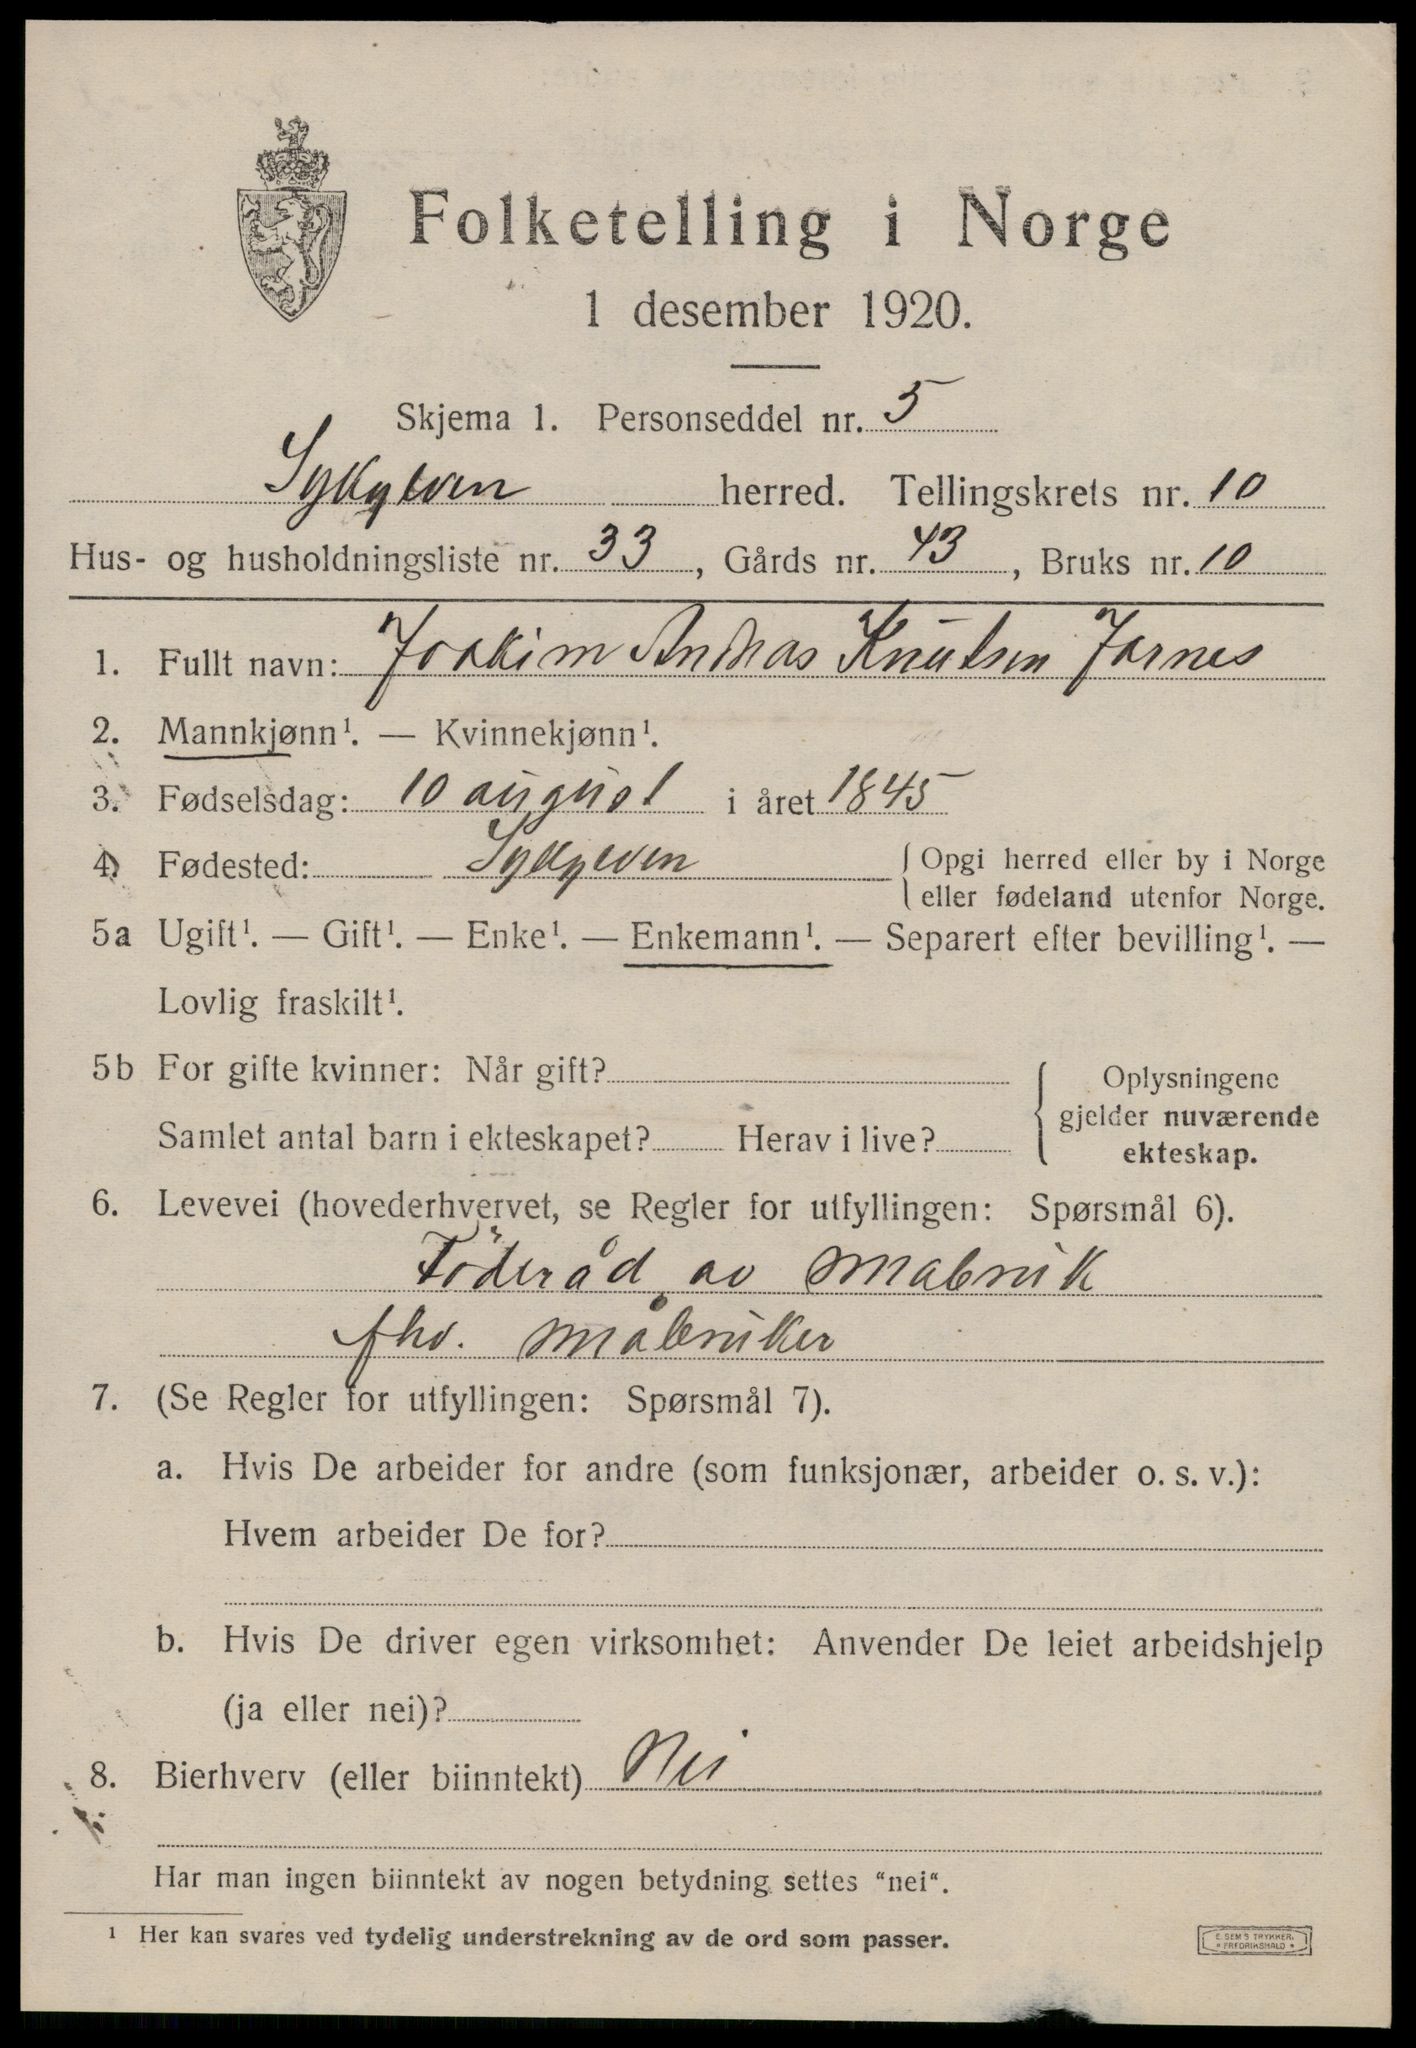 Folketelling i Norge
1 desember 1920.
Skjema 1. Personseddel nr. 5
Sykylven herred. Tellingskrets nr. 10
Hus- og husholdningsliste nr. 33, Gårds nr. 43, Bruks nr. 10
1. Fullt navn: Joakim Andreas Knutsen Jarnes
2. Mannkjønn¹. — Kvinnekjønn¹.
3. Fødselsdag: 10 august i året 1845
4. Fødested: Sykylven { Opgi herred eller by i Norge
eller fødeland utenfor Norge.
5a Ugift¹. — Gift¹. — Enke¹. — Enkemann¹. — Separert efter bevilling¹. —
Lovlig fraskilt¹.
5b For gifte kvinner: Når gift?
Samlet antal barn i ekteskapet? Herav i live?
{ Oplysningene
gjelder nuværende
ekteskap.
6. Levevei (hovederhvervet, se Regler for utfyllingen: Spørsmål 6).
Föderåd av småbruk
fhv. småbruker
7. (Se Regler for utfyllingen: Spørsmål 7).
a. Hvis De arbeider for andre (som funksjonær, arbeider o. s. v.):
Hvem arbeider De for?
b. Hvis De driver egen virksomhet: Anvender De leiet arbeidshjelp
(ja eller nei)?
8. Bierhverv (eller biinntekt) Nei
Har man ingen biinntekt av nogen betydning settes “nei“.
¹ Her kan svares ved tydelig understrekning av de ord som passer.
E. SEM'S TRYKKERI
* FREDRIKSHALD *